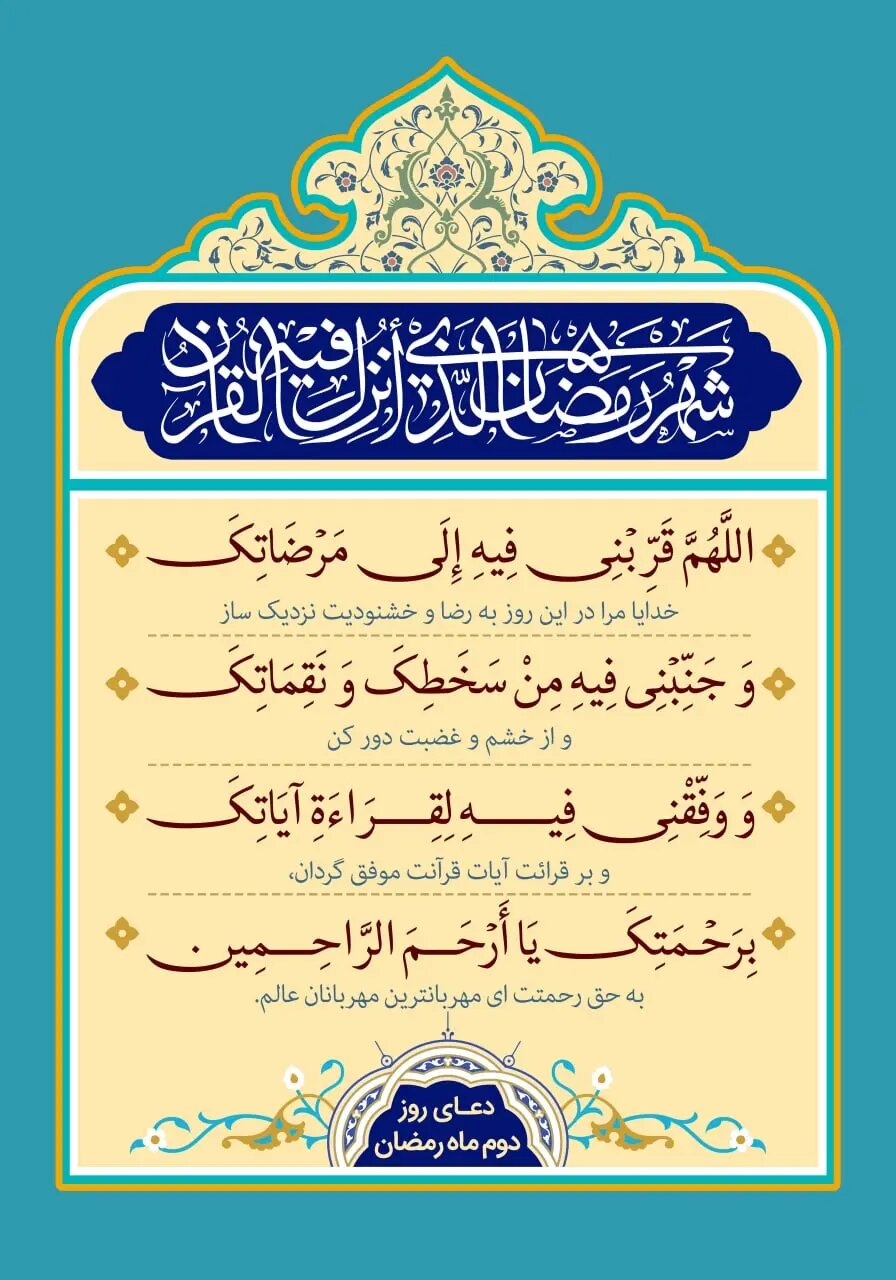 شهر رمضان الذي أنزل فيه القرآن
اللَّهُمَّ قَرِّبْنِی فِیهِ إِلَی مَرْضَاتِکَ
خدایا مرا در این روز به رضا و خشنودیت نزدیک ساز
وَ جَنِّبْنِی فِیهِ مِنْ سَخَطِکَ وَ نَقِمَاتِکَ
و از خشم و غضبت دور کن
وَ وَفِّقْنِی فِیهِ لِقِرَاءَةِ آیَاتِکَ
و بر قرائت آیات قرآنت موفق گردان،
بِرَحْمَتِکَ یَا أَرْحَمَ الرَّاحِمِین
به حق رحمتت ای مهربانترین مهربانان عالم.
دعای روز
دوم ماه رمضان